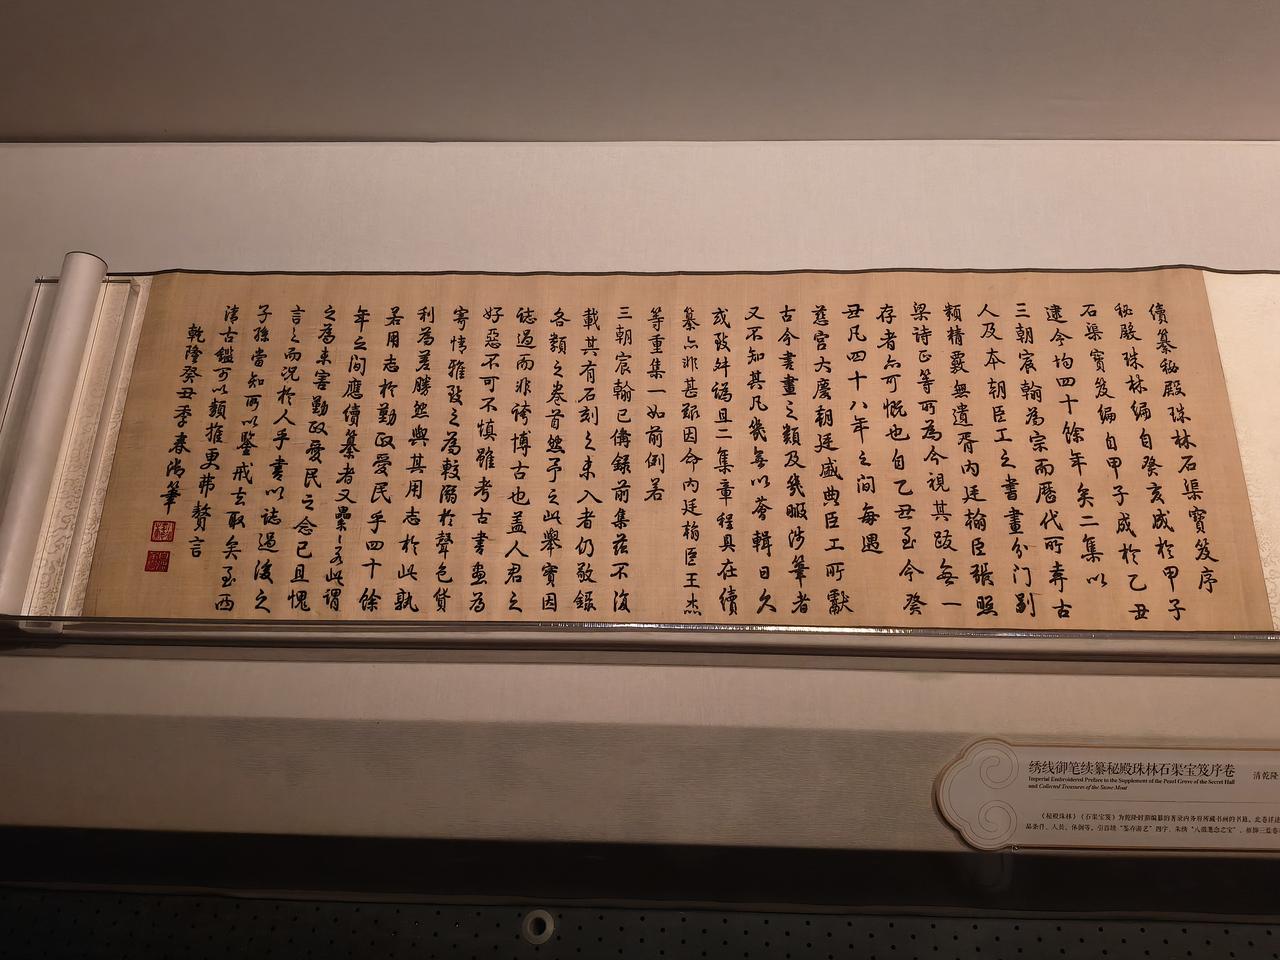 續纂秘殿珠林石渠寶笈序
秘殿珠林編自癸亥成於甲子
石渠寶笈編自甲子成於乙丑
逮今均四十餘年矣二集以
三朝宸翰為宗而曆代所弆古
人及本朝臣工之書畫分門別
類精覈無遺胥內廷翰臣張照
梁詩正等所為今視其跋無一
存者亦可慨也自乙丑至今癸
丑凡四十八年之間每遇
慈宮大慶朝廷盛典臣工所獻
古今書畫之類及幾暇涉筆者
又不知其凡幾無以薈輯日久
或致舛譌且二集章程具在續
纂亦非甚艱因命內廷翰臣王杰
等重集一如前例若
三朝宸翰已備錄前集茲不復
載其有石刻之未入者仍敬錄
各類之卷首然予之此舉實因
誌過而非誇博古也蓋人君之
好惡不可不慎雖考古書畫為
寄情雅致之為較溺於聲色貨
利為差勝然與其用志於此孰
若用志於勤政愛民乎四十餘
年之間應續纂者又纍纍若此謂
之為未害勤政愛民之念已且愧
言之而況於人乎書以誌過後之
子孫當知所以鑒戒去取矣至西
清古鑑可以類推更弗贅言
乾隆癸丑季春御筆
绣线御笔续纂秘殿珠林石渠宝笈序卷
清乾隆
Imperial Embroidered Preface to the Supplement of the Pearl Grove of the Secret Hall
and Collected Treasures of the Stone Moat
《秘殿珠林》《石渠宝笈》为乾隆时期编纂的著录内务府所藏书画的书籍。此卷详述
品条件、人员、体例等。引首绣
四字，朱绣“八徵耄念之宝”